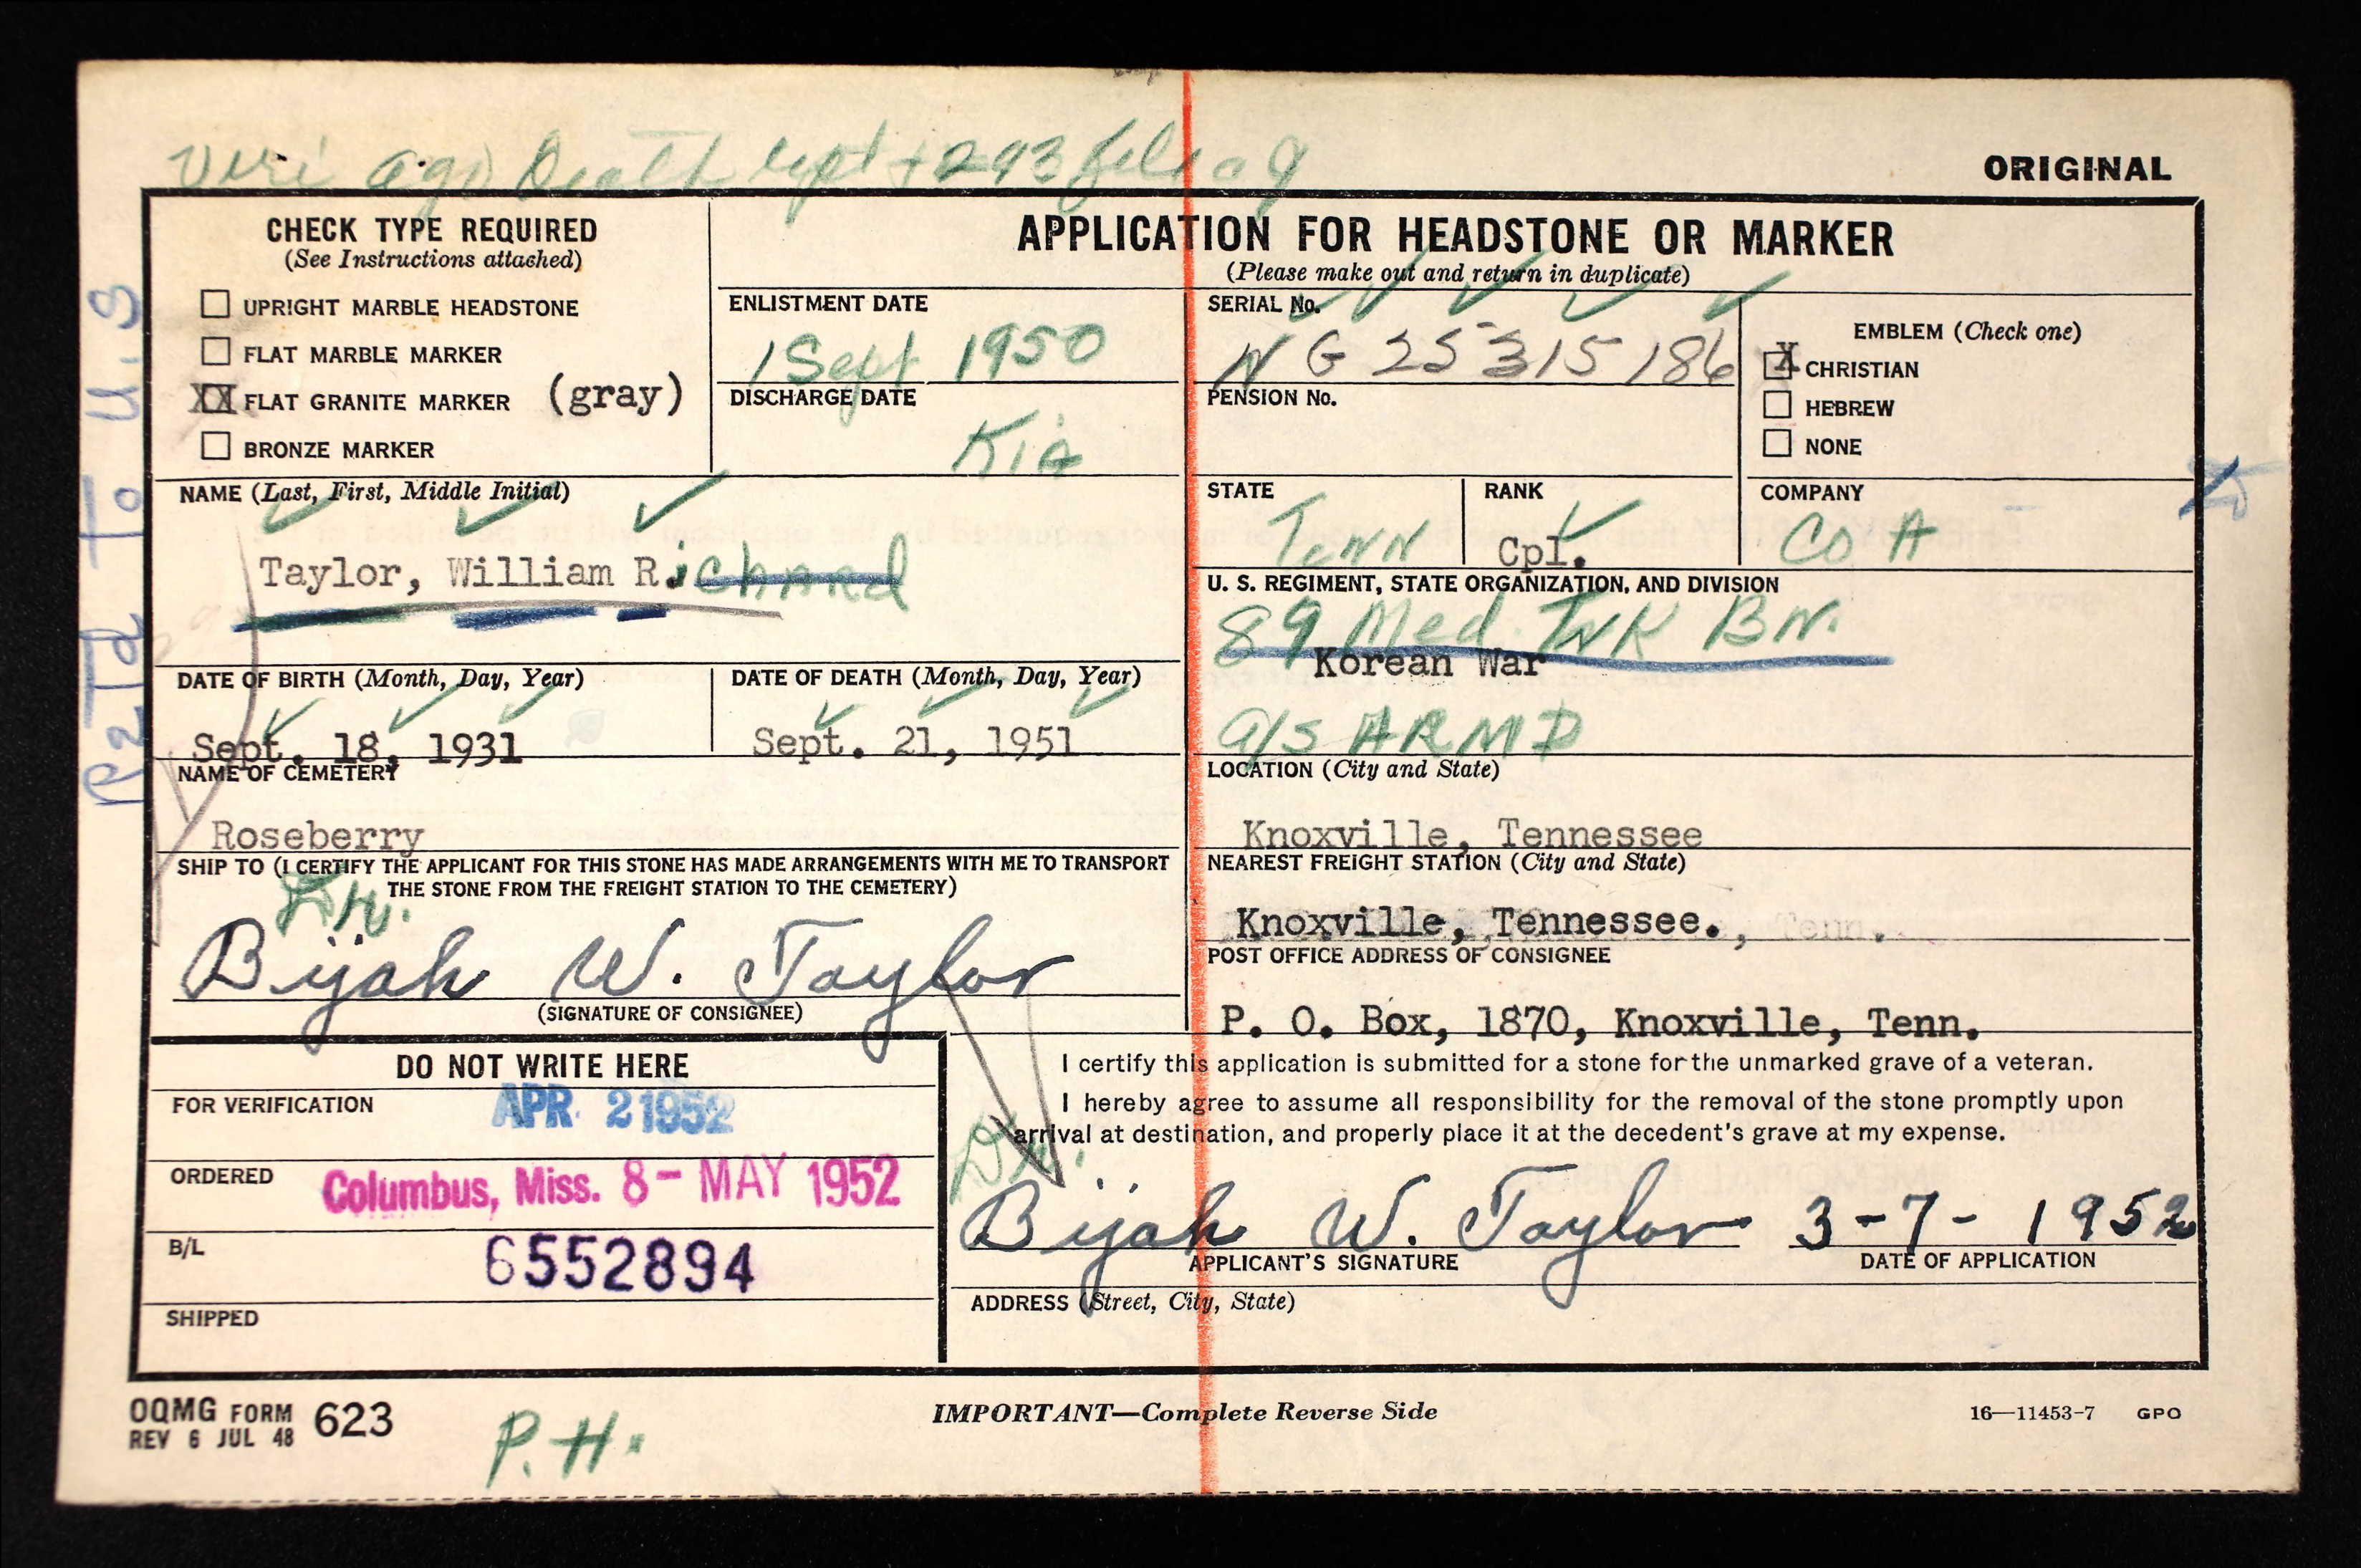 Veri ago Death rept + 293 file
ORIGINAL
CHECK TYPE REQUIRED
(See Instructions attached)
UPRIGHT MARBLE HEADSTONE
FLAT MARBLE MARKER
XX FLAT GRANITE MARKER (gray)
BRONZE MARKER
APPLICATION FOR HEADSTONE OR MARKER
(Please make out and return in duplicate)
ENLISTMENT DATE
1 Sept 1950
DISCHARGE DATE
Kia
SERIAL No.
N G 25 315 186
PENSION No.
EMBLEM (Check one)
X CHRISTIAN
HEBREW
NONE
NAME (Last, First, Middle Initial)
Taylor, William Richard
STATE
Tenn
RANK
Cpl.
COMPANY
Co A
U. S. REGIMENT, STATE ORGANIZATION, AND DIVISION
89 Med. TNK BN.
Korean War
a/s ARMD
DATE OF BIRTH (Month, Day, Year)
Sept. 18, 1931
DATE OF DEATH (Month, Day, Year)
Sept. 21, 1951
NAME OF CEMETERY
Roseberry
LOCATION (City and State)
Knoxville, Tennessee
SHIP TO (I CERTIFY THE APPLICANT FOR THIS STONE HAS MADE ARRANGEMENTS WITH ME TO TRANSPORT
THE STONE FROM THE FREIGHT STATION TO THE CEMETERY)
Bijah W. Taylor
(SIGNATURE OF CONSIGNEE)
NEAREST FREIGHT STATION (City and State)
Knoxville, Tennessee. , Tenn.
POST OFFICE ADDRESS OF CONSIGNEE
P. O. Box, 1870, Knoxville, Tenn.
DO NOT WRITE HERE
FOR VERIFICATION
APR 2 1952
ORDERED
Columbus, Miss. 8- MAY 1952
B/L
6552894
SHIPPED
I certify this application is submitted for a stone for the unmarked grave of a veteran.
I hereby agree to assume all responsibility for the removal of the stone promptly upon
arrival at destination, and properly place it at the decedent's grave at my expense.
Bijah W. Taylor 3-7-1952
APPLICANT'S SIGNATURE
DATE OF APPLICATION
ADDRESS (Street, City, State)
OQMG FORM 623
REV 6 JUL 48
P. H.
IMPORTANT—Complete Reverse Side
16—11453-7 GPO
R2Td To U.S